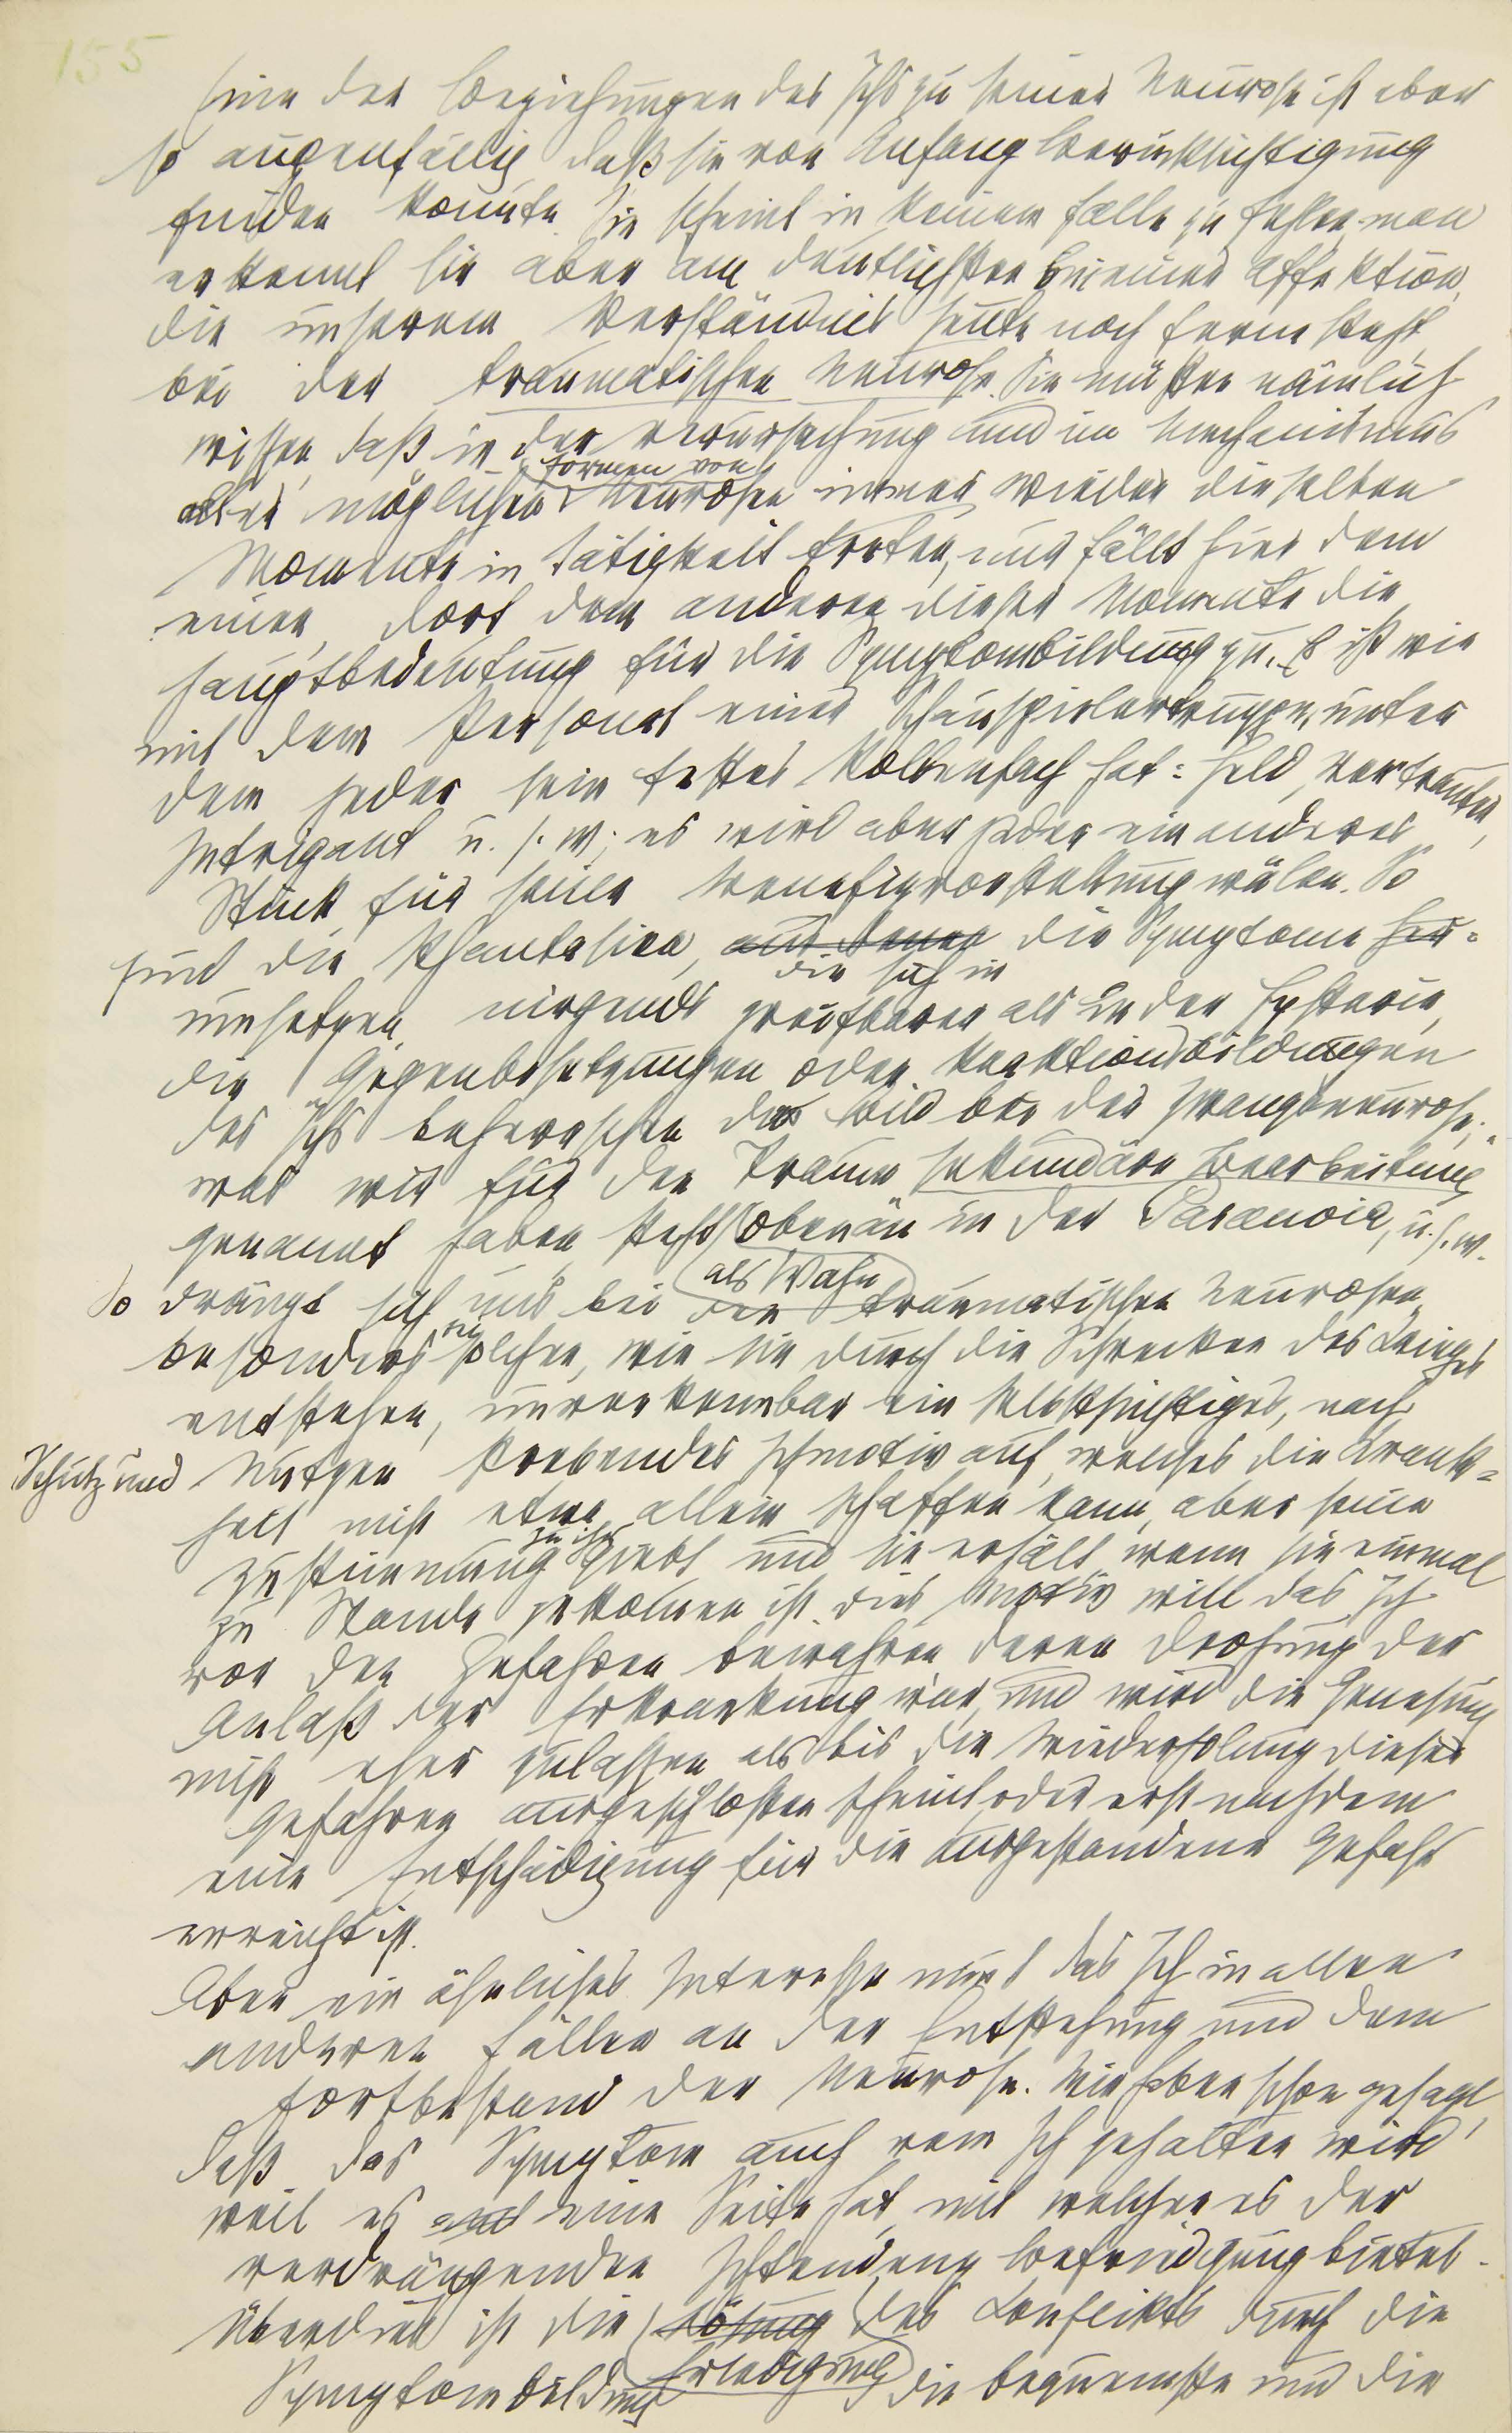 155
Eine der Beziehungen des Ichs zu seiner Neurose ist aber
so augenfällig daß sie von Anfang Berücksichtigung
finden konnte. Sie scheint in keinem Falle zu fehlen, man
erkennt sie aber am deutlichsten bei einer Affektion,
die unserem Verständnis heute noch ferne steht,
bei der traumatischen Neurose. Sie müssen nämlich
wissen, daß in der Verursachung und im Mechanismus
aller möglichen Formen von Neurosen immer wieder dieselben
Momente in Tätigkeit treten, nur fällt hier dem
einen, dort dem anderen dieser Momente die
Hauptbedeutung für die Symptombildung zu. Es ist wie
mit dem Personal einer Schauspielertruppe, unter
dem jeder sein festes Rollenfach hat: Held, Vertrauter,
Intrigant u. s. w; es wird aber jeder ein anderes
Stück für seine Benefizvorstellung wälen. So
sind die Phantasien, aus denen die Symptome her-
die sich in
umsetzen, nirgends greifbarer als in der Hysterie,
die Gegenbesetzungen oder Reaktionsbildungen
des Ichs beherrschen das Bild bei der Zwangsneurose;
was wir für den Traum sekundäre Bearbeitung
genannt haben, steht obenan in der Paranoia, u. s. w.
als Wahn
So drängt sich uns bei den traumatischen Neurosen,
besonders bei solchen, wie sie durch die Schrecken des Krieges
entstehen, unverkennbar ein selbstsüchtiges, nach
Schutz und Nutzen strebendes Ichmotiv auf, welches die Krank-
heit nicht etwa allein schaffen kann, aber seine
Zustimmung zu ihr giebt und sie erhält, wenn sie einmal
zu Stande gekommen ist. Dies Motiv will das Ich
vor den Gefahren bewahren deren Drohung der
Anlaß der Erkrankung war, und wird die Genesung
nicht eher zulassen als bis die Wiederholung dieser
Gefahren ausgeschlossen scheint oder erst nachdem
eine Entschädigung für die ausgestandene Gefahr
erreicht ist.
Aber ein änliches Interesse nimt das Ich in allen
anderen Fällen an der Entstehung und dem
Fortbestand der Neurose. Wir haben schon gesagt,
daß das Symptom auch vom Ich gehalten wird,
weil es eine Seite hat, mit welcher es der
verdrängenden Ichtendenz Befriedigung bietet.
Überdies ist die Lösung des Konflikts durch die
Erledigung
Symptombildung die bequemste und die